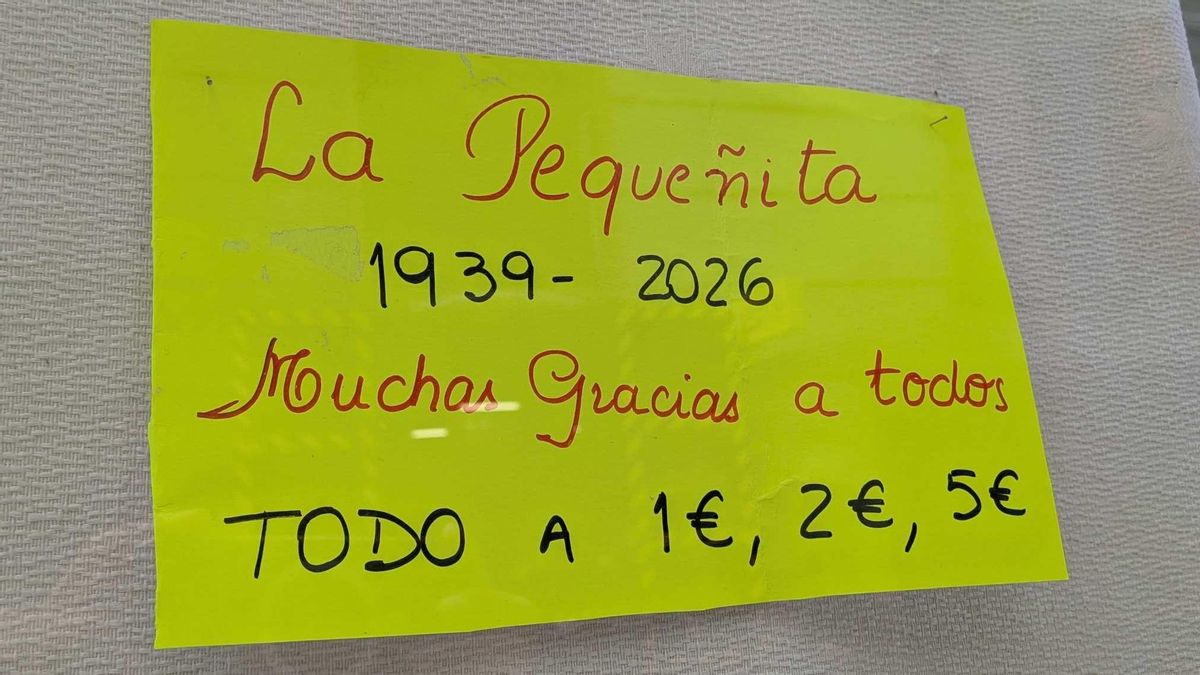 La Pequeñita
1939- 2026
Muchas Gracias a todos
TODO A 1€, 2€, 5€